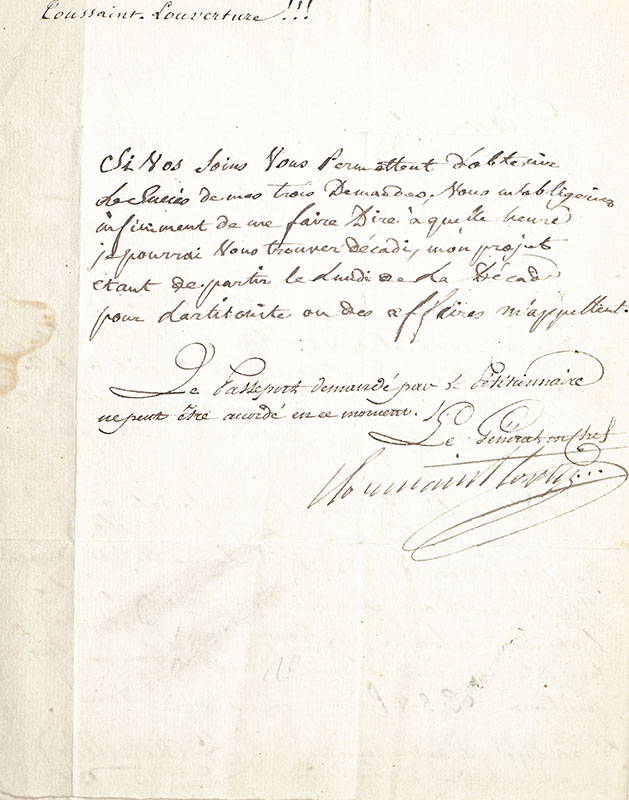 Toussaint-Louverture!!!
Si Vos Soins Vous Permettent d'obtenir
le Succès de mes trois Demandes, Vous m'obligeriez
infiniment de me faire Dire à quelle heure
je pourrai Vous trouver décadi, mon projet
étant de partir le Lundi de La Décade
pour Lartibonite ou des affaires m'appellent.
Le Passeport demandé par le Pétitionnaire
ne peut être acordé en ce moment.
Le Général en chef
Toussaint Louverture